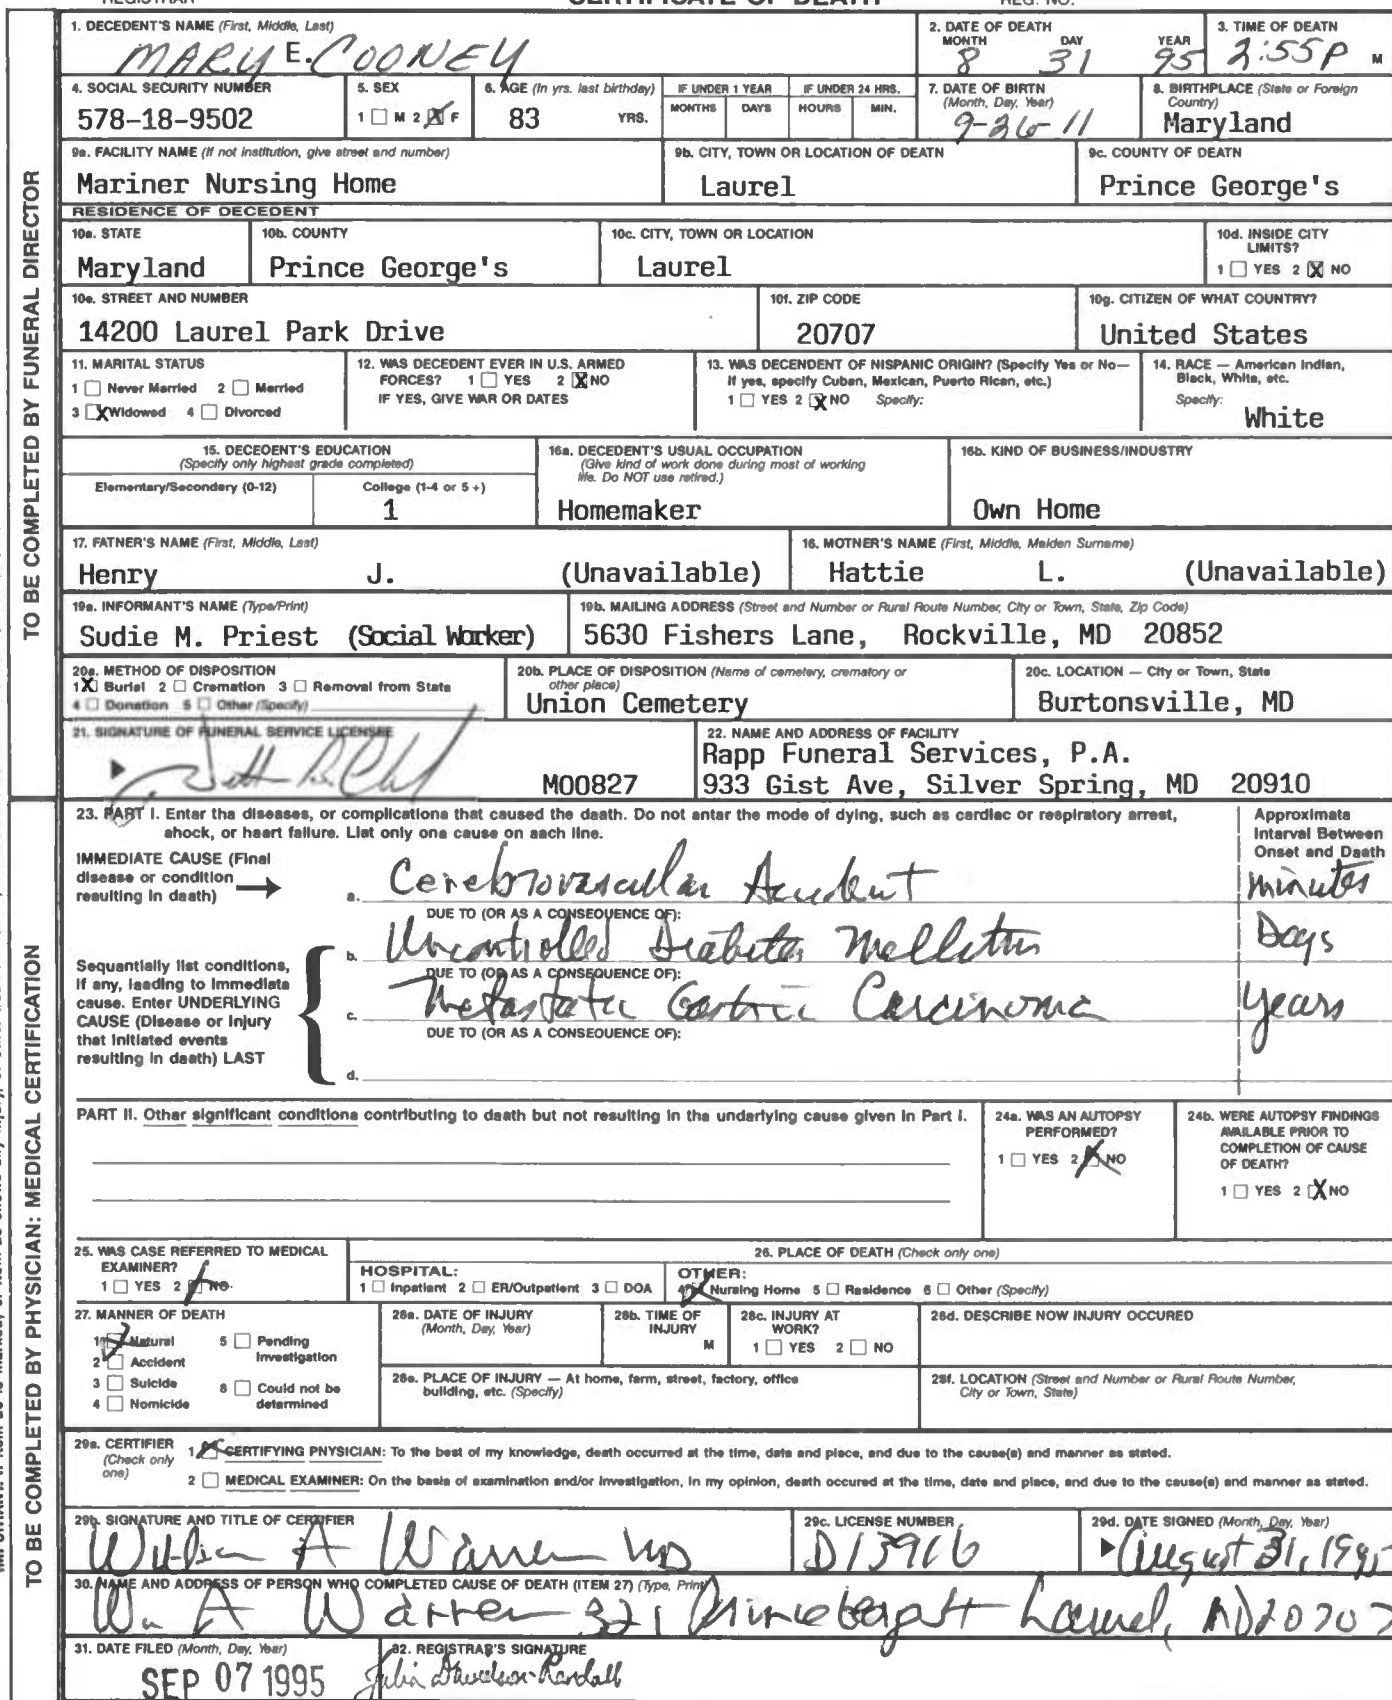 CERTIFICATE OF DEATH
1. DECEDENT'S NAME (First, Middle, Last)
MARY E. COONEY
2. DATE OF DEATH
MONTH DAY YEAR
8 31 95
3. TIME OF DEATN
2:55P M
4. SOCIAL SECURITY NUMBER
578-18-9502
5. SEX
1 ☐ M 2 ☒ F
6. AGE (In yrs. last birthday)
83 YRS.
IF UNDER 1 YEAR
MONTHS DAYS
IF UNDER 24 HRS.
HOURS MIN.
7. DATE OF BIRTN
(Month, Day, Year)
9-26-11
8. BIRTHPLACE (State or Foreign
Country)
Maryland
9a. FACILITY NAME (If not institution, give street and number)
Mariner Nursing Home
9b. CITY, TOWN OR LOCATION OF DEATN
Laurel
9c. COUNTY OF DEATN
Prince George's
RESIDENCE OF DECEDENT
10a. STATE
Maryland
10b. COUNTY
Prince George's
10c. CITY, TOWN OR LOCATION
Laurel
10d. INSIDE CITY
LIMITS?
1 ☐ YES 2 ☒ NO
10e. STREET AND NUMBER
14200 Laurel Park Drive
10f. ZIP CODE
20707
10g. CITIZEN OF WHAT COUNTRY?
United States
11. MARITAL STATUS
1 ☐ Never Married 2 ☐ Married
3 ☒ Widowed 4 ☐ Divorced
12. WAS DECEDENT EVER IN U.S. ARMED
FORCES? 1 ☐ YES 2 ☒ NO
IF YES, GIVE WAR OR DATES
13. WAS DECENDENT OF NISPANIC ORIGIN? (Specify Yes or No—
If yes, specify Cuban, Mexican, Puerto Rican, etc.)
1 ☐ YES 2 ☒ NO Specify:
14. RACE — American Indian,
Black, White, etc.
Specify:
White
15. DECEDENT'S EDUCATION
(Specify only highest grade completed)
Elementary/Secondary (0-12) College (1-4 or 5+)
1
16a. DECEDENT'S USUAL OCCUPATION
(Give kind of work done during most of working
life. Do NOT use retired.)
Homemaker
16b. KIND OF BUSINESS/INDUSTRY
Own Home
17. FATNER'S NAME (First, Middle, Last)
Henry J. (Unavailable)
18. MOTNER'S NAME (First, Middle, Maiden Surname)
Hattie L. (Unavailable)
19a. INFORMANT'S NAME (Type/Print)
Sudie M. Priest (Social Worker)
19b. MAILING ADDRESS (Street and Number or Rural Route Number, City or Town, State, Zip Code)
5630 Fishers Lane, Rockville, MD 20852
20a. METHOD OF DISPOSITION
1 ☒ Burial 2 ☐ Cremation 3 ☐ Removal from State
4 ☐ Donation 5 ☐ Other (Specify)
20b. PLACE OF DISPOSITION (Name of cemetery, crematory or
other place)
Union Cemetery
20c. LOCATION — City or Town, State
Burtonsville, MD
21. SIGNATURE OF FUNERAL SERVICE LICENSEE
M00827
22. NAME AND ADDRESS OF FACILITY
Rapp Funeral Services, P.A.
933 Gist Ave, Silver Spring, MD 20910
TO BE COMPLETED BY FUNERAL DIRECTOR
23. PART I. Enter the diseases, or complications that caused the death. Do not enter the mode of dying, such as cardiac or respiratory arrest,
shock, or heart failure. List only one cause on each line.
Approximate
Interval Between
Onset and Death
IMMEDIATE CAUSE (Final
disease or condition
resulting in death) →
a. Cerebrovascular Accident minutes
DUE TO (OR AS A CONSEQUENCE OF):
b. Uncontrolled Diabetes Mellitus Days
DUE TO (OR AS A CONSEQUENCE OF):
c. Metastatic Gastric Carcinoma years
DUE TO (OR AS A CONSEQUENCE OF):
d.
Sequentially list conditions,
if any, leading to immediate
cause. Enter UNDERLYING
CAUSE (Disease or injury
that initiated events
resulting in death) LAST
PART II. Other significant conditions contributing to death but not resulting in the underlying cause given in Part I.
24a. WAS AN AUTOPSY
PERFORMED?
1 ☐ YES 2 ☒ NO
24b. WERE AUTOPSY FINDINGS
AVAILABLE PRIOR TO
COMPLETION OF CAUSE
OF DEATH?
1 ☐ YES 2 ☒ NO
25. WAS CASE REFERRED TO MEDICAL
EXAMINER?
1 ☐ YES 2 ☒ NO
26. PLACE OF DEATH (Check only one)
HOSPITAL:
1 ☐ Inpatient 2 ☐ ER/Outpatient 3 ☐ DOA
OTHER:
4 ☒ Nursing Home 5 ☐ Residence 6 ☐ Other (Specify)
27. MANNER OF DEATH
1 ☒ Natural 5 ☐ Pending
Investigation
2 ☐ Accident
3 ☐ Suicide 8 ☐ Could not be
determined
4 ☐ Nomicide
28a. DATE OF INJURY
(Month, Day, Year)
28b. TIME OF
INJURY
M
28c. INJURY AT
WORK?
1 ☐ YES 2 ☐ NO
28d. DESCRIBE NOW INJURY OCCURED
28e. PLACE OF INJURY — At home, farm, street, factory, office
building, etc. (Specify)
28f. LOCATION (Street and Number or Rural Route Number,
City or Town, State)
29a. CERTIFIER
(Check only
one)
1 ☒ CERTIFYING PNYSICIAN: To the best of my knowledge, death occurred at the time, date and place, and due to the cause(s) and manner as stated.
2 ☐ MEDICAL EXAMINER: On the basis of examination and/or investigation, in my opinion, death occured at the time, date and place, and due to the cause(s) and manner as stated.
29b. SIGNATURE AND TITLE OF CERTIFIER
William A Warren MD
29c. LICENSE NUMBER
D13916
29d. DATE SIGNED (Month, Day, Year)
August 31, 1995
30. NAME AND ADDRESS OF PERSON WHO COMPLETED CAUSE OF DEATH (ITEM 27) (Type, Print)
Wm A Warren 321 Laurel, MD 20707
31. DATE FILED (Month, Day, Year)
SEP 07 1995
32. REGISTRAR'S SIGNATURE
Julia Davidson-Randall
TO BE COMPLETED BY PHYSICIAN: MEDICAL CERTIFICATION